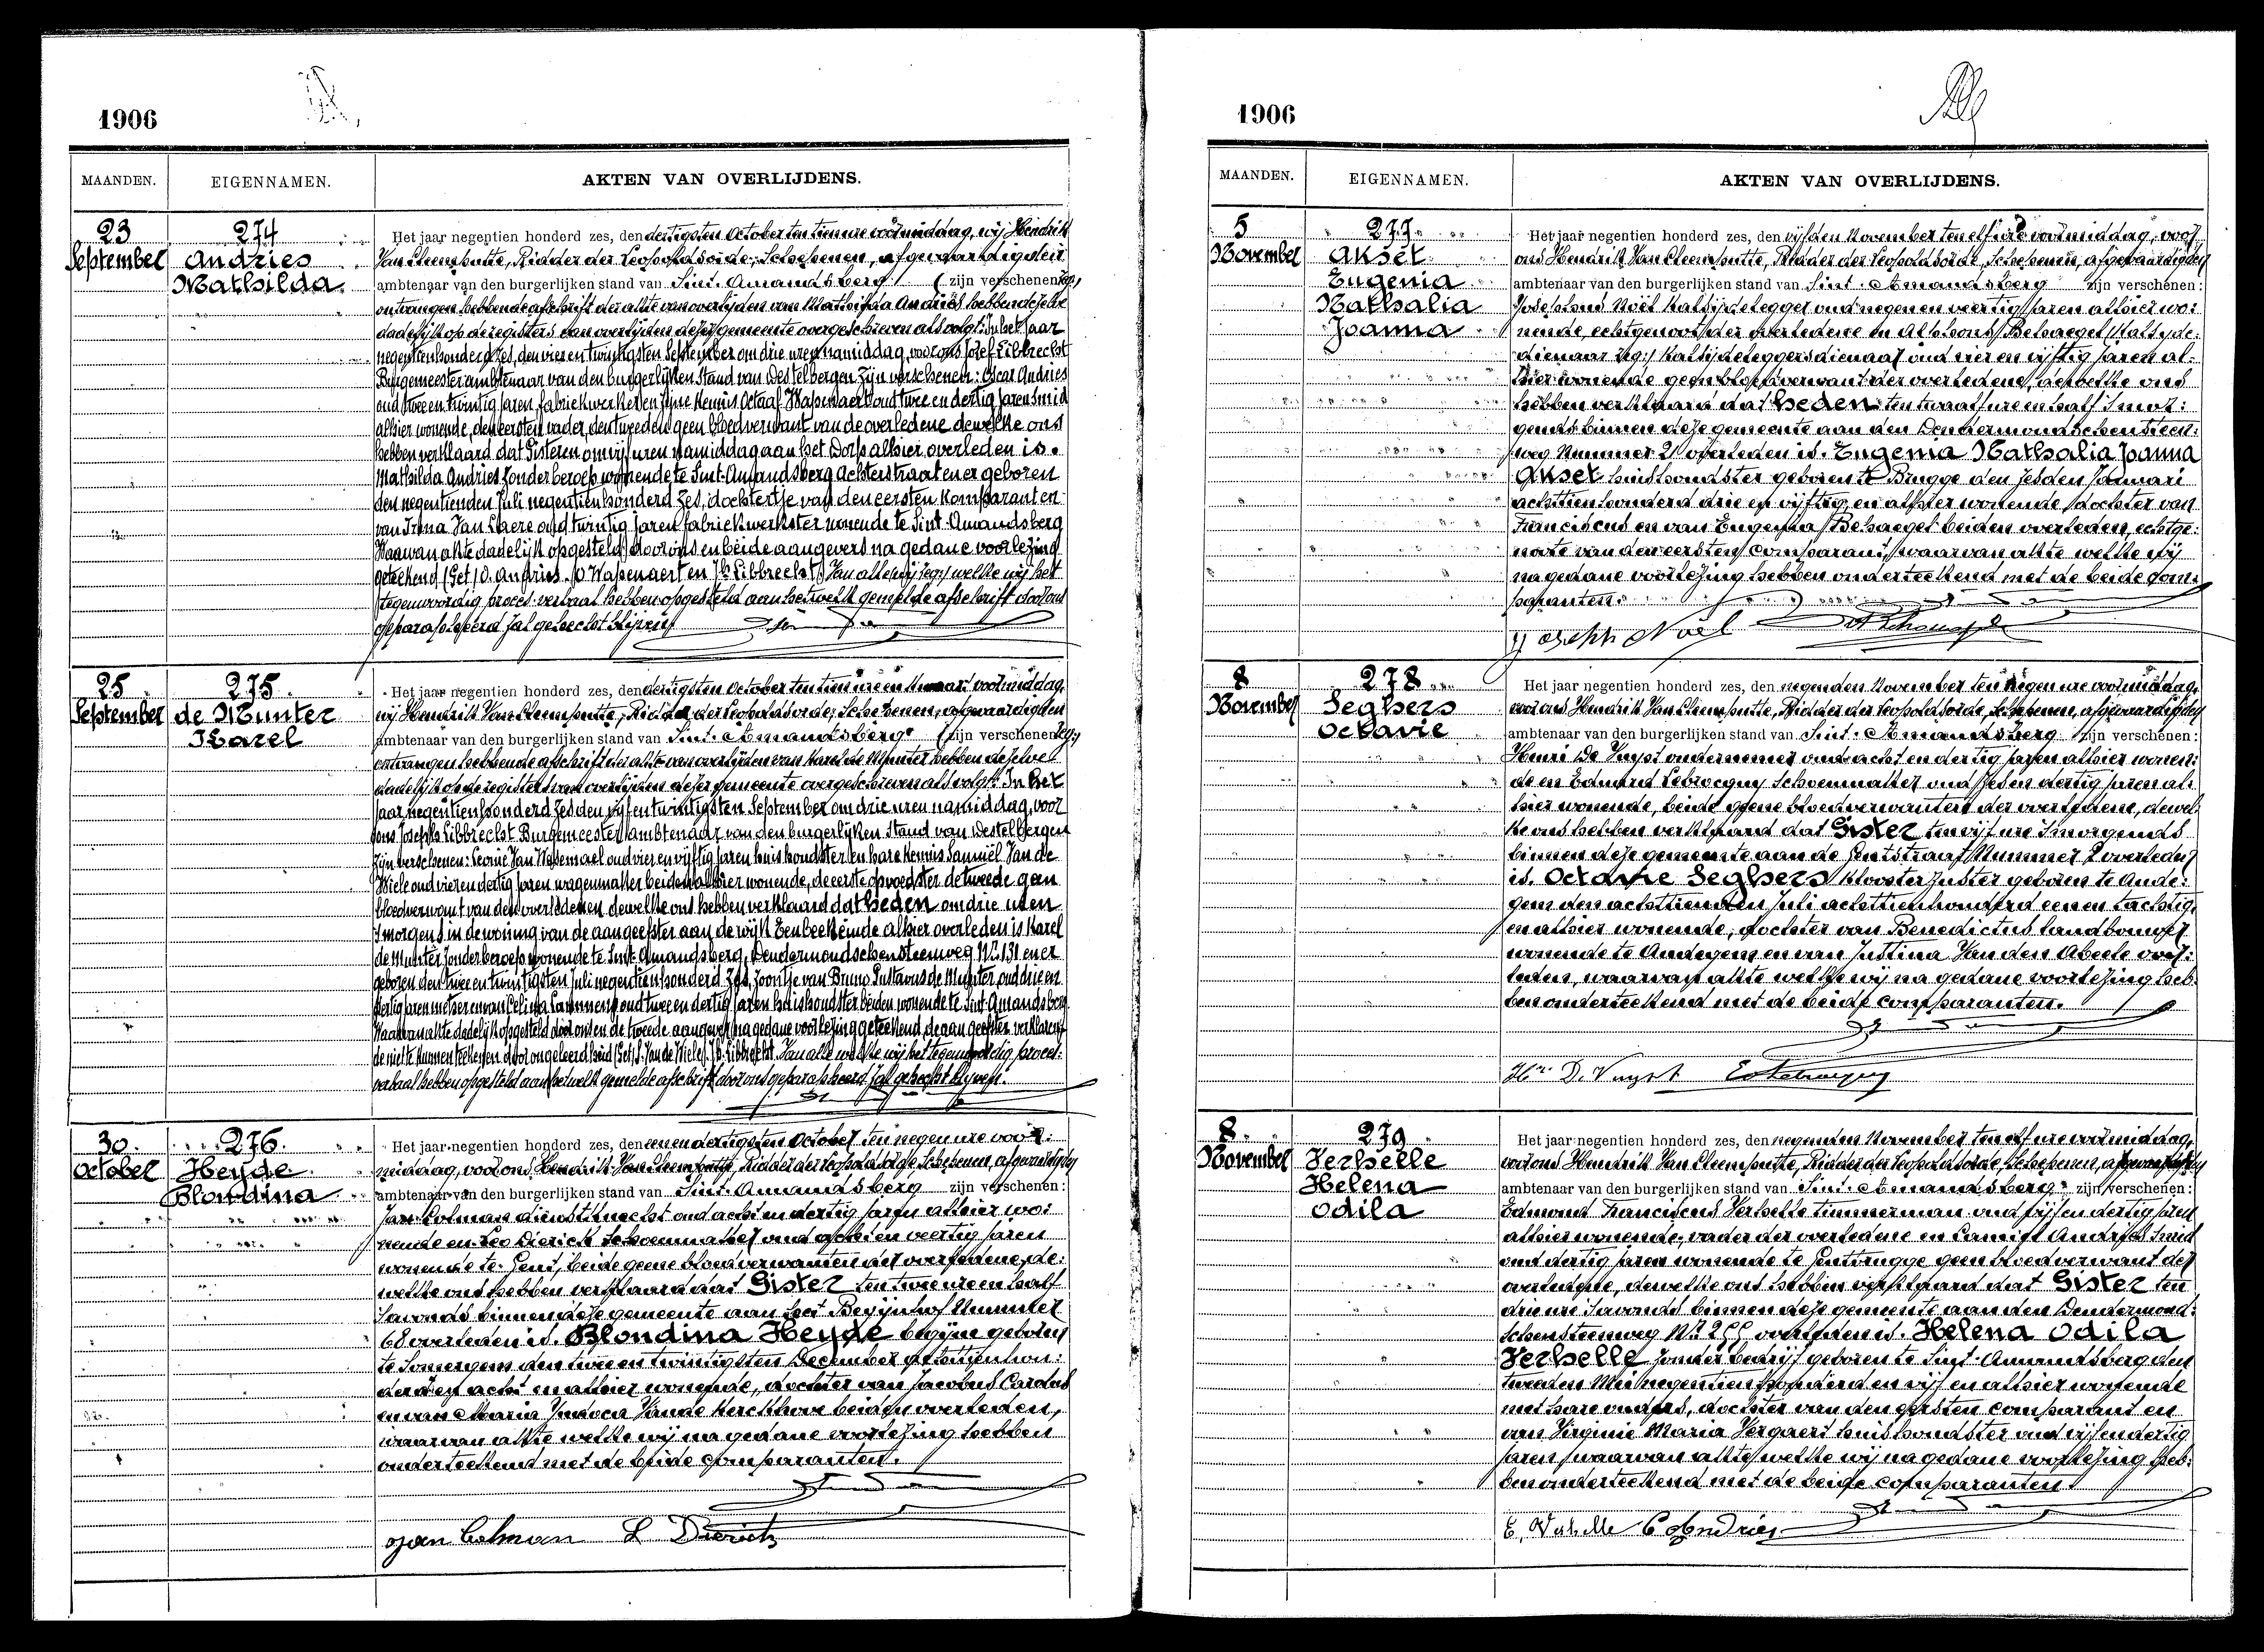 1906
MAANDEN.
EIGENNAMEN.
AKTEN VAN OVERLIJDENS.
23
September
274
Andries
Mathilda
Het jaar negentien honderd zes, den dertigsten October ten tien ure voormiddag, wij Hendrik
Van Cleemputte, Ridder der Leopoldsorde, Schepenen, afgevaardigden
ambtenaar van den burgerlijken stand van Sint. Amandsberg (zijn verschenen zeg:)
ontvangen hebbende afschrift der akte van overlijden van Mathilda Andries hebben dezelve
dadelijk op de registers van overlijden dezer gemeente overgeschreven als volgt: In het jaar
negentienhonderd zes, den vier en twintigsten September om drie uren namiddag, voor ons Josef Libbrecht
Burgemeester ambtenaar van den burgerlijken Stand van Destelbergen zijn verschenen: Oscar Andries
oud twee en twintig jaren, fabriekwerker en zijne kennis Octaaf Wapenaert oud twee en dertig jaren smid
alhier wonende, den eersten vader, den tweeden geen bloedverwant van de overledene dewelke ons
hebben verklaard dat Gisteren om vijf uren namiddag aan het Dorp alhier overleden is.
Mathilda Andries zonder beroep wonende te Sint-Amandsberg Achterstraat en er geboren
den negentienden Juli negentienhonderd zes, dochtertje van den eersten komparant en
van Irma Van Laere oud twintig jaren fabriekwerkster wonende te Sint-Amandsberg
Waarvan akte dadelijk opgesteld door ons en beide aangevers na gedane voorlezing
geteekend (Get) O. Andries. O Wapenaert en J. Libbrecht) Van alle wij zeg:) welke wij het
tegenwoordig proces-verbaal hebben opgesteld aan hetwelk gemelde afschrift door ons
geparapheerd zal gehecht blijven
25
September
275
de Munter
Karel
Het jaar negentien honderd zes, den dertigsten October ten tien ure en kwaart voormiddag,
wij Hendrik Van Cleemputte, Ridder der Leopoldsorde, Schepenen, afgevaardigden
ambtenaar van den burgerlijken stand van Sint. Amandsberg (zijn verschenen zeg:)
ontvangen hebbende afschrift der akte van overlijden van Karel de Munter hebben dezelve
dadelijk op de registers van overlijden dezer gemeente overgeschreven als volgt: In het
jaar negentienhonderd zes den vijf en twintigsten September om drie uren namiddag, voor
ons Joseph Libbrecht Burgemeester ambtenaar van den burgerlijken Stand van Destelbergen
zijn verschenen: Leonie Van Wassemael oud vier en vijftig jaren huishoudster en hare kennis Samuël Van de
Wiele oud vier en dertig jaren wagenmaker beiden alhier wonende, de eerste opvoedster de tweede geen
bloedverwant van den overledenen dewelke ons hebben verklaard dat heden om drie uren
smorgens in de woning van de aangeefster aan de wijk Eenbeekeinde alhier overleden is Karel
de Munter zonder beroep wonende te Sint-Amandsberg, Dendermondschensteenweg N.º 131 en er
geboren den twee en twintigsten Juli negentienhonderd zes, zoontje van Bruno Gustavus de Munter, oud drie en
dertig jaren metser en van Celina oud twee en dertig jaren huishoudster beiden wonende te Sint-Amandsberg.
Waarvan akte dadelijk opgesteld door ons en de tweede aangever na gedane voorlezing geteekend, de aangeefster verklarende
de niet te kunnen teekenen door ongeleerdheid (Get) S. Van de Wiele J. Libbrecht. Van alle welke wij het tegenwoordig proces-
verbaal hebben opgesteld aan hetwelk gemelde afschrift door ons geparapheerd zal gehecht blijven.
30
October
276
Heyde
Blondina
Het jaar negentien honderd zes, den eenen dertigsten October ten negen ure voor:
middag, voor ons Hendrik Van Cleemputte, Ridder der Leopoldsorde, Schepenen, afgevaardigden
ambtenaar van den burgerlijken stand van Sint. Amandsberg zijn verschenen:
Jan Colman dienstknecht oud acht en dertig jaren alhier wo:
nende en Leo Dierick Schoenmaker oud acht en veertig jaren
wonende te Gent, beide geene bloedverwanten der overledene, de:
welke ons hebben verklaard dat Gister ten twee ure en half
savonds binnen deze gemeente aan het Begijnhof Nummer
68 overleden is. Blondina Heyde begijne geboren
te Somergem den twee en twintigsten December achttienhon:
derd acht en alhier wonende, dochter van Jacobus Carolus
en van Maria Judoca Vande Kerckhove beiden overleden,
waarvan akte welke wij na gedane voorlezing hebben
onderteekend met de beide comparanten.
Jan Colman L Dierick
1906
MAANDEN.
EIGENNAMEN.
AKTEN VAN OVERLIJDENS.
5
November
277
Akset
Eugenia
Nathalia
Joanna
Het jaar negentien honderd zes, den vijfden November ten elf ure voormiddag, voor
ons Hendrik Van Cleemputte, Ridder der Leopoldsorde, Schepenen, afgevaardigden
ambtenaar van den burgerlijken stand van Sint. Amandsberg zijn verschenen:
Josephus Noël Kalsijdelegger oud negen en veertig jaren alhier wo:
nende, echtgenoot der overledene en Alphons Behaeget Kalsijde:
dienaar zeg:) Kalsijdeleggersdienaar oud vier en vijftig jaren al:
hier wonende geen bloedverwant der overledene, dewelke ons
hebben verklaard dat heden ten twaalf ure en half smor:
gends binnen deze gemeente aan den Dendermondschensteen:
weg Nummer 21 overleden is. Eugenia Nathalia Joanna
Akset huishoudster geboren te Brugge den zesden Januari
achttienhonderd drie en vijftig, en alhier wonende, dochter van
Franciscus en van Eugenia Behaeget beiden overleden, echtge:
noote van den eersten comparant, waarvan akte welke wij
na gedane voorlezing hebben onderteekend met de beide com:
paranten.
Joseph Noël
8
November
278
Seghers
Octavie
Het jaar negentien honderd zes, den negenden November ten negen ure voormiddag,
voor ons Hendrik Van Cleemputte, Ridder der Leopoldsorde, Schepenen, afgevaardigden
ambtenaar van den burgerlijken stand van Sint. Amandsberg zijn verschenen:
Henri De Vuyst ondernemer oud acht en dertig jaren alhier wonen:
de en Eduard Lebrocquy Schoenmaker oud zes en dertig jaren al:
hier wonende, beide geene bloedverwanten der overledene, dewel:
ke ons hebben verklaard dat Gister ten vijf ure smorgends
binnen deze gemeente aan de Gentstraat Nummer 2 overleden
is. Octavie Seghers kloosterzuster geboren te Aude:
gem den achttienden Juli achttienhonderd een en tachtig,
en alhier wonende, dochter van Benedictus landbouwer
wonende te Audegem en van Justina Van den Abeele over:
leden, waarvan akte welke wij na gedane voorlezing heb:
ben onderteekend met de beide comparanten.
Hri. D. Vuyst E Lebrocquy
8
November
279
Verhelle
Helena
Odila
Het jaar negentien honderd zes, den negenden November ten elf ure voormiddag,
voor ons Hendrik Van Cleemputte, Ridder der Leopoldsorde, Schepenen, afgevaardigden
ambtenaar van den burgerlijken stand van Sint. Amandsberg zijn verschenen:
Edmond Franciscus Verhelle timmerman oud vijf en dertig jaren
alhier wonende, vader der overledene en Camiel Andries smid
oud dertig jaren wonende te Gentbrugge geen bloedverwant der
overledene, dewelke ons hebben verklaard dat Gister ten
drie ure savonds binnen deze gemeente aan den Dendermond:
schensteenweg N.º 255 overleden is. Helena Odila
Verhelle zonder bedrijf geboren te Sint-Amandsberg den
tweeden Mei negentienhonderd en vijf en alhier wonende
met hare ouders, dochter van den eersten comparant en
van Virginie Maria Vergaert huishoudster oud vijf en dertig
jaren, waarvan akte welke wij na gedane voorlezing heb:
ben onderteekend met de beide comparanten.
E. Verhelle C Andries